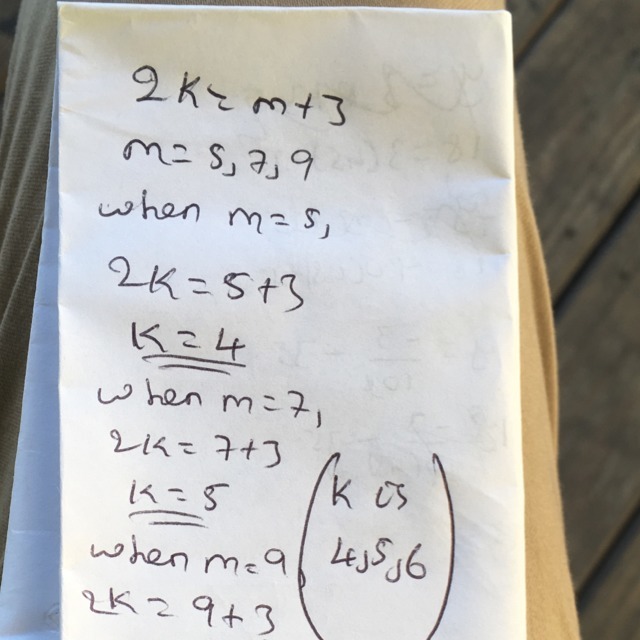 2K = m+3
m = 5, 7, 9
when m = 5,
2K = 5+3
K = 4
when m = 7,
2K = 7+3
K = 5
when m = 9,
2K = 9+3
K is
4, 5, 6